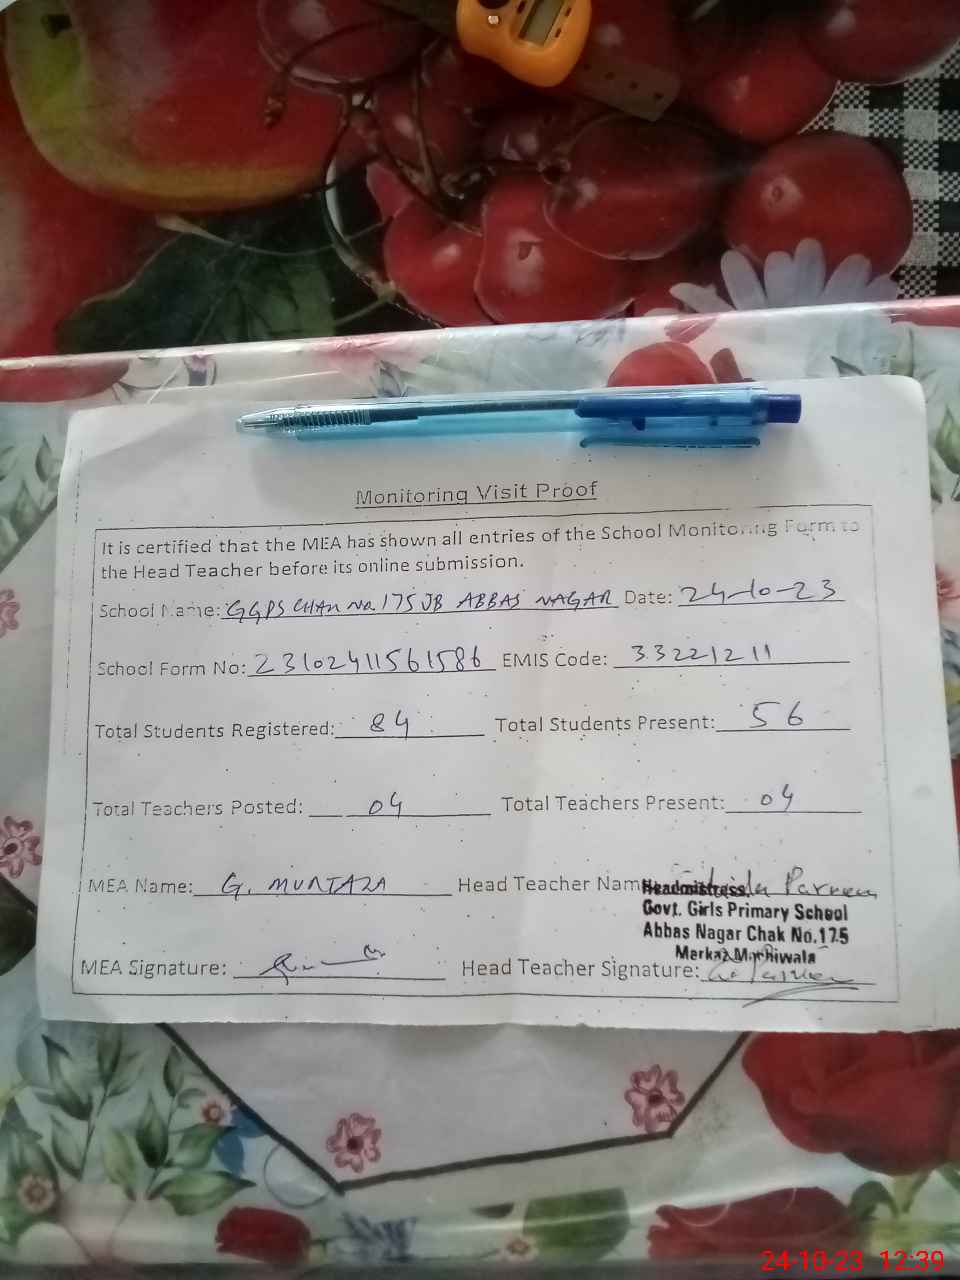 Monitoring Visit Proof
It is certified that the MEA has shown all entries of the School Monitoring Form to
the Head Teacher before its online submission.
School Name: GGPS CHAK No. 175 JB ABBAS NAGAR Date: 24-10-23
School Form No: 23102411561586 EMIS Code: 33221211
Total Students Registered: 84 Total Students Present: 56
Total Teachers Posted: 04 Total Teachers Present: 04
MEA Name: G. MURTAZA Head Teacher Name: Parveen
Headmistress
Govt. Girls Primary School
Abbas Nagar Chak No.175
Markaz
MEA Signature: Head Teacher Signature: Parveen
24-10-23 12:39